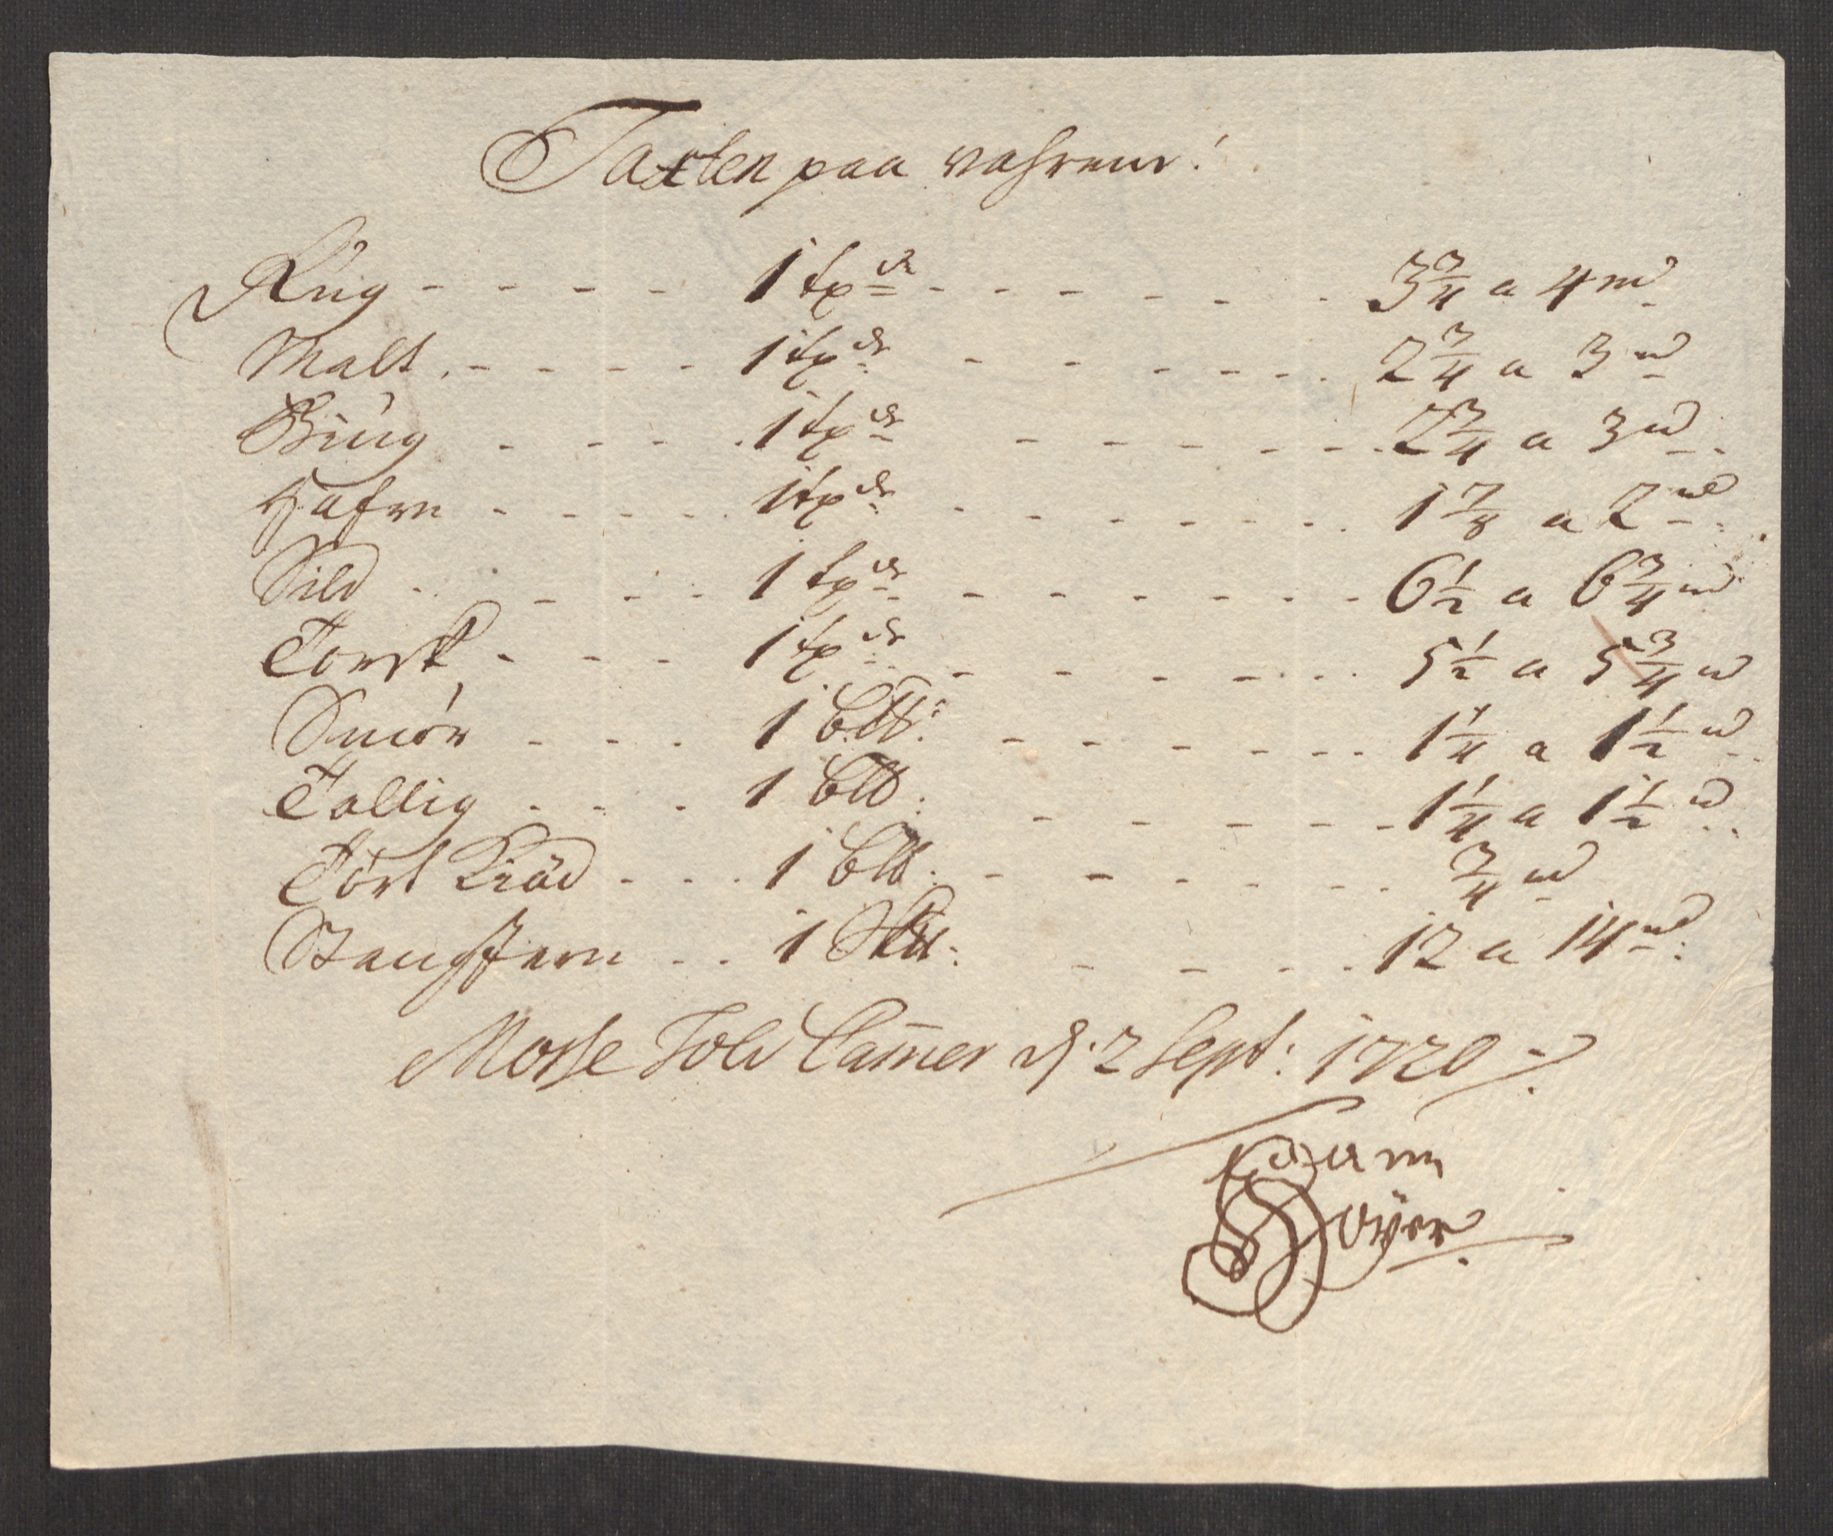 Taxten paa vahrene!
Rug - - - - 1 tde - - - - - 3 3/4 a 4 rd
Malt - - - - 1 tde - - - - - 2 3/4 a 3 rd
Biug - - - - 1 tde - - - - - 2 3/4 a 3 rd
Hafre - - - - 1 tde - - - - - 1 7/8 a 2 rd
Sild - - - - 1 tde - - - - - 6 1/2 a 6 3/4 rd
Torsk - - - 1 tde - - - - - 5 1/2 a 5 3/4 rd
Smör - - - 1 Bltt: - - - - - 1 1/4 a 1 1/2 rd
Tallig - - - 1 Btt. - - - - - 1 1/4 a 1 1/2 rd
Tört Kiöd - - - 1 Btt. - - - - - 3/4 rd
Stangjern - - 1 Sktt. - - - - 12 a 14 rd
Mosse Told Cam̄er d: 2 Sept: 1720
Höyer